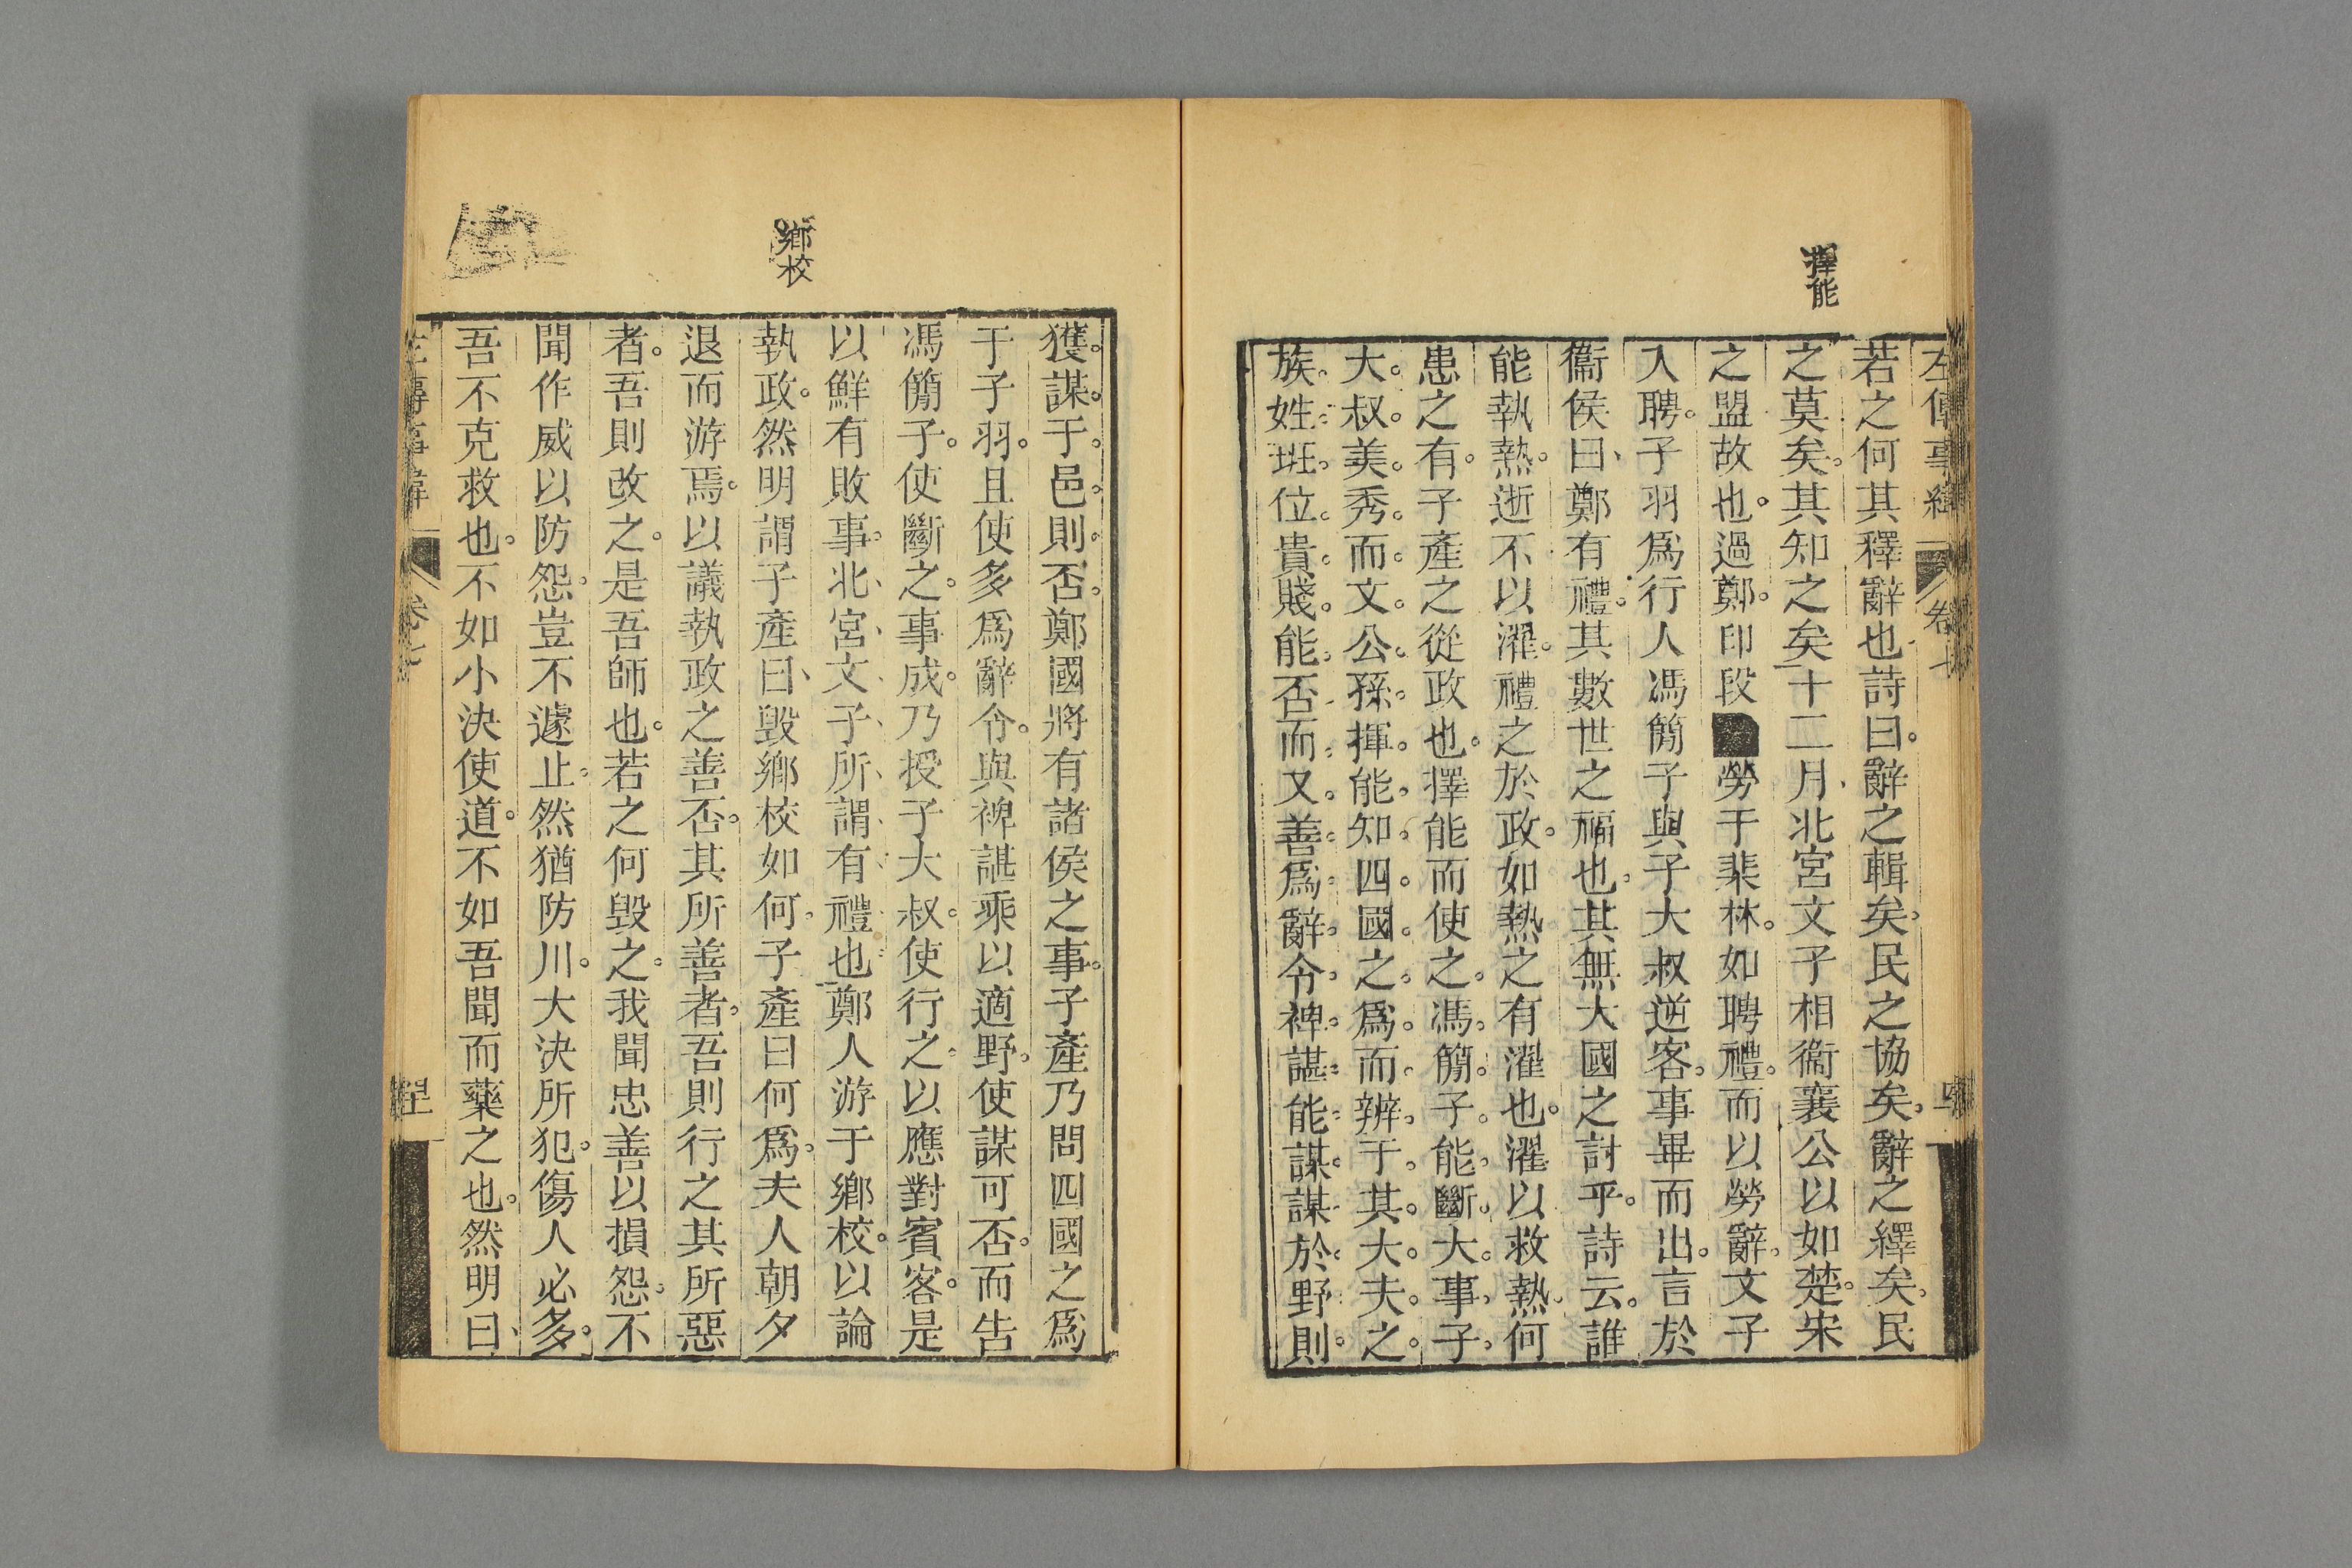 擇能
左傳事緯 卷七
若之何其釋辭也詩曰。辭之輯矣。民之協矣。辭之繹矣。民
之莫矣。其知之矣十二月北宮文子相衞襄公以如楚。宋
之盟故也。過鄭。印段勞于棐林。如聘禮。而以勞辭。文子
入聘。子羽爲行人馮簡子與子大叔逆客。事畢而出。言於
衞侯曰、鄭有禮。其數世之福也。其無大國之討乎。詩云。誰
能執熱。逝不以濯。禮之於政。如熱之有濯也。濯以救熱。何
患之有。子產之從政也。擇能而使之。馮簡子能斷大事。子
大叔美秀而文。公孫揮能知四國之爲。而辨于其大夫之
族姓班位貴賤能否。而又善爲辭令。裨諶能謀。謀於野則
鄉校
獲。謀于邑則否。鄭國將有諸侯之事。子產乃問四國之爲
于子羽。且使多爲辭令。與裨諶乘以適野。使謀可否。而告
馮簡子。使斷之。事成。乃授子大叔。使行之。以應對賓客。是
以鮮有敗事。北宮文子所謂有禮也鄭人游于鄉校。以論
執政。然明謂子產曰、毀鄉校如何。子產曰何爲。夫人朝夕
退而游焉。以議執政之善否。其所善者。吾則行之其所惡
者。吾則改之。是吾師也。若之何毀之。我聞忠善以損怨。不
聞作威以防怨。豈不遽止。然猶防川。大決所犯。傷人必多。
吾不克救也。不如小決使道。不如吾聞而藥之也。然明曰、
左傳事緯 卷七